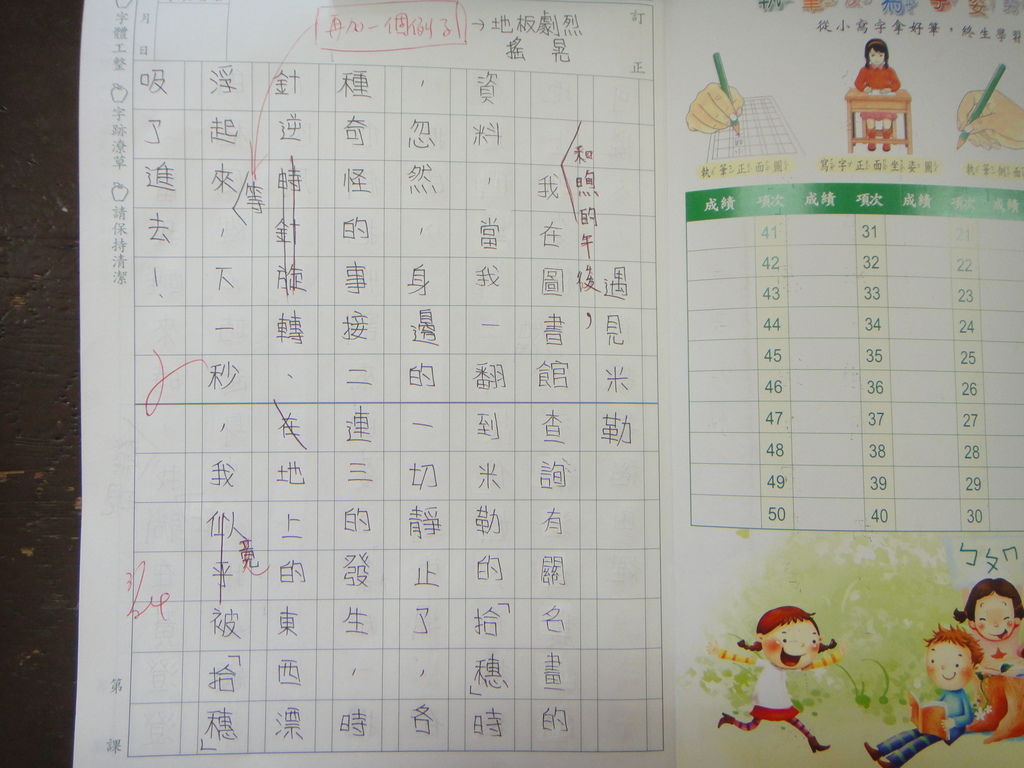 再加一個例子→地板劇烈
搖晃
訂正
遇見米勒
和煦的午後，
我在圖書館查詢有關名畫的
資料，當我一翻到米勒的「拾穗」時
，忽然，身邊的一切靜止了，各
種奇怪的事接二連三的發生，時
針逆時針旋轉、在地上的東西漂
浮起來，不一秒，我似乎被「拾穗」
等
竟
吸了進去！
3/24
月
日
字體工整
字跡潦草
請保持清潔
第
課
從小寫字拿好筆，終生學習
執筆正面圖
寫字正面坐姿圖
成績 項次 成績 項次 成績 項次 成績
41 31 21
42 32 22
43 33 23
44 34 24
45 35 25
46 36 26
47 37 27
48 38 28
49 39 29
50 40 30
ㄅㄆㄇ